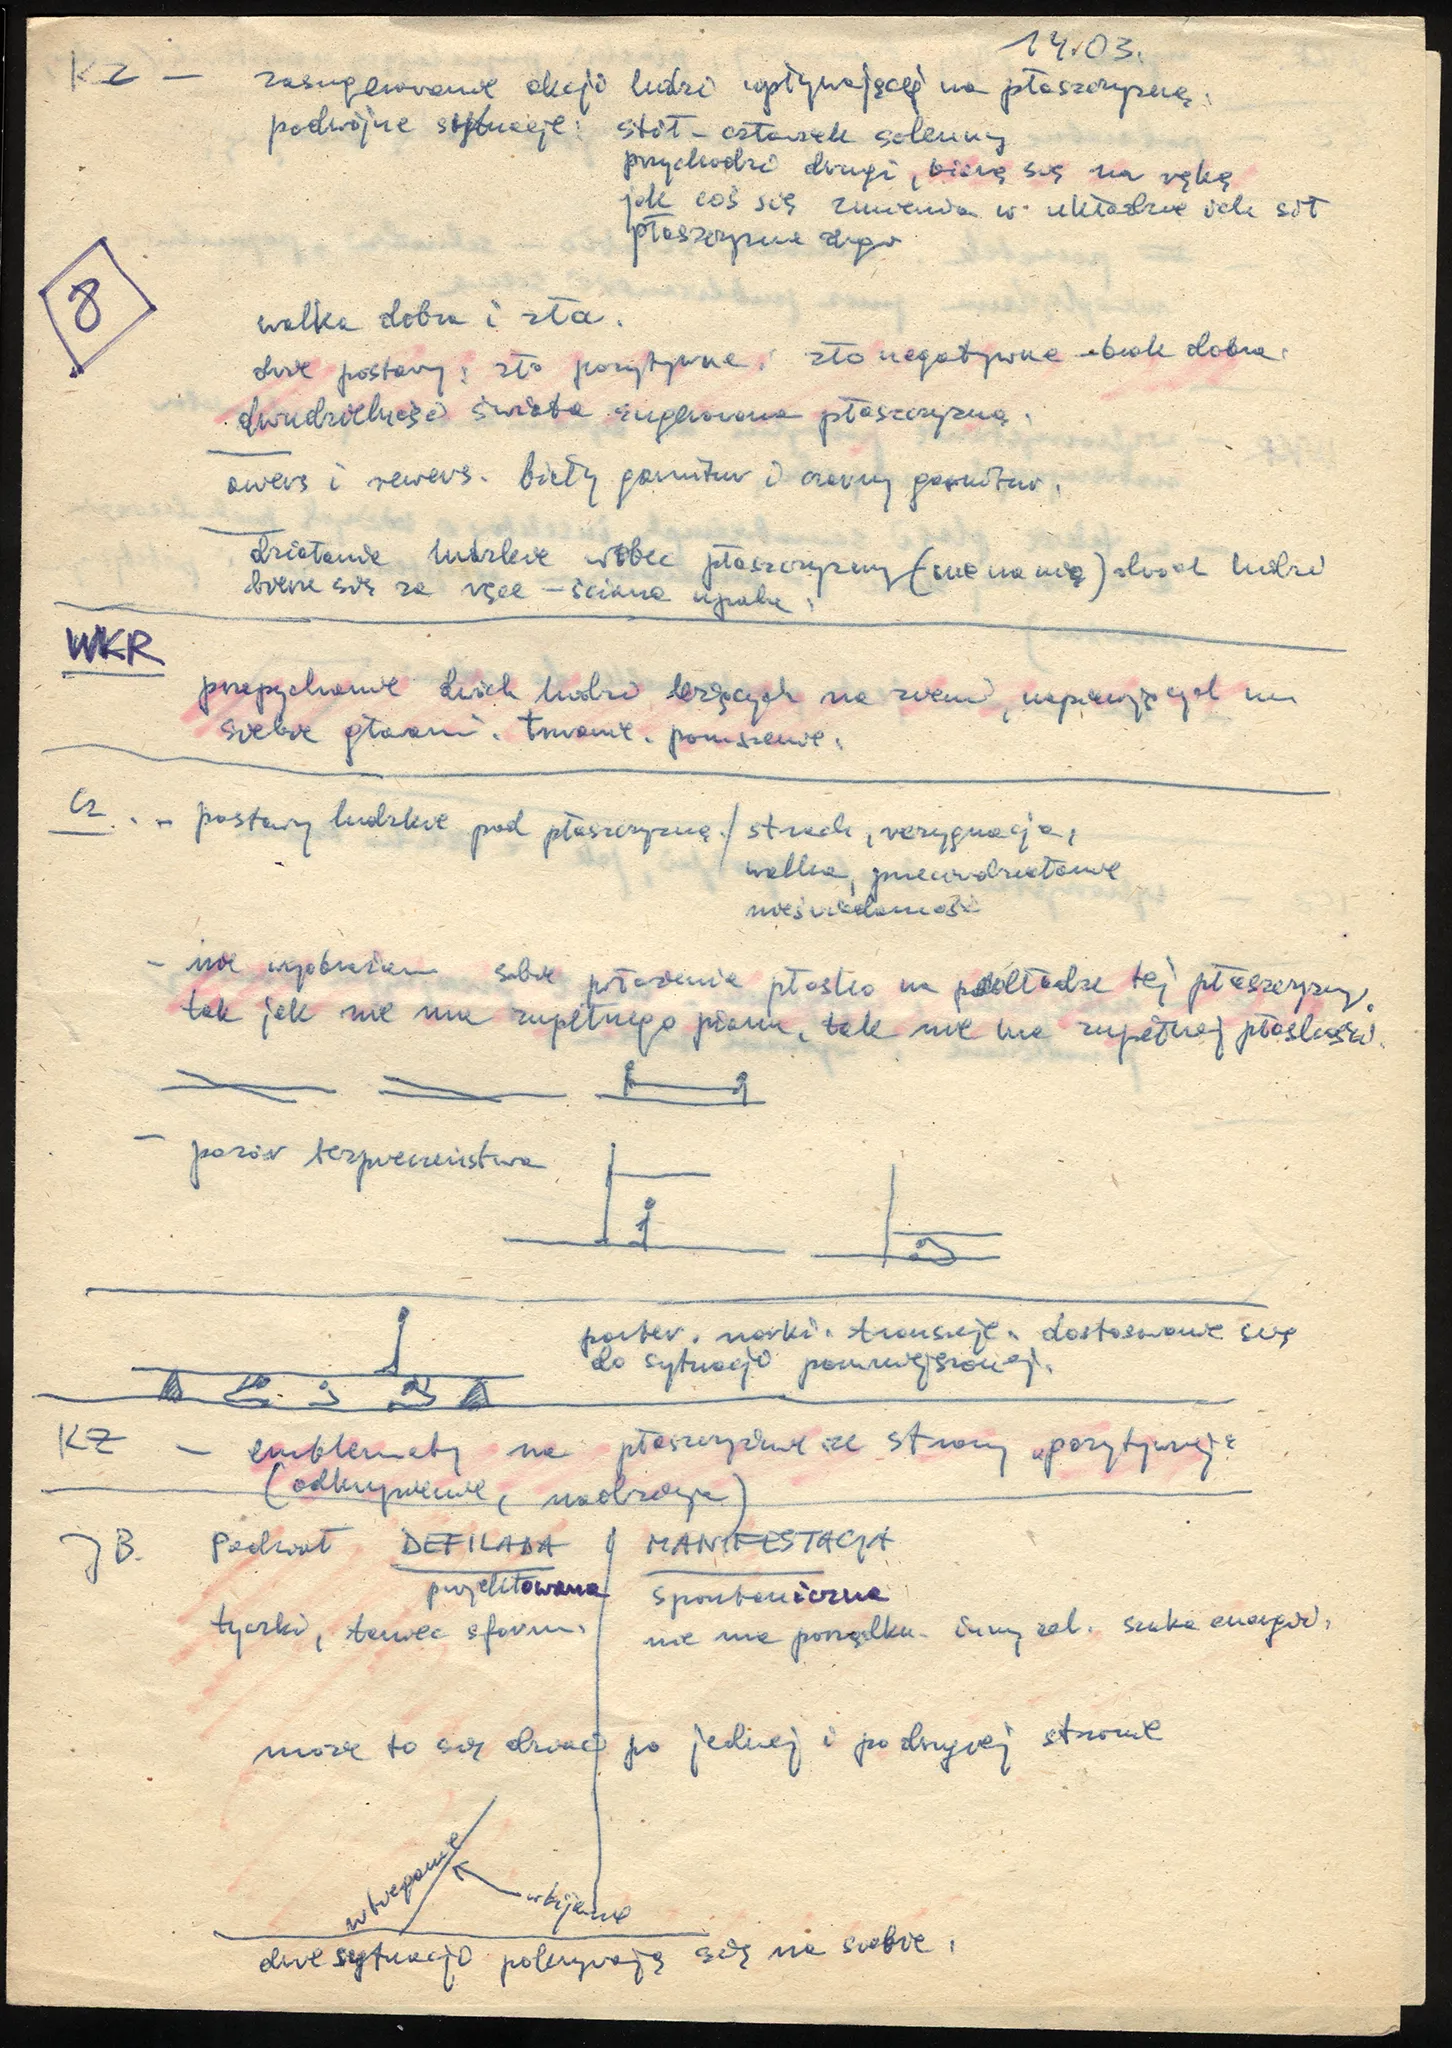 14.03.
KZ — zasugerowanie akcji ludzi wpływającej na płaszczyznę.
podwójne sytuacje: stół - człowiek solenny
przychodzi drugi, biorą się na rękę
jak coś się zmienia w układzie ich sił
płaszczyzna drga
8
walka dobra i zła.
dwie postawy: zło pozytywne, zło negatywne - brak dobra.
dwudzielność świata sugerowana płaszczyzną.
awers i rewers. biały garnitur i czarny garnitur.
działanie ludzkie wobec płaszczyzny (nie na nią) dwóch ludzi
bierze się za ręce - ściana upada.
WKR
przepychanie dwóch ludzi leżących na ziemi, napierających na
siebie głowami. trwanie. poruszenie.
Cz. - postawy ludzkie pod płaszczyzną / strach, rezygnacja,
walka, przeciwdziałanie
nieświadomość
- nie wyobrażam sobie położenia płasko na podkładzie tej płaszczyzny.
tak jak nie ma zupełnego pionu, tak nie ma zupełnej płaskości.
- pozór bezpieczeństwa
parter. norki. transzeje. dostosowanie się
do sytuacji pomniejszonej.
KZ - emblematy na płaszczyźnie ze strony "pozytywnej"
(odkupienie, nadzieja)
JB. Podkwat DEFILADA MANIFESTACJA
projektowana spontaniczna
tyczki, taniec sform. nie ma porządku. inny zal. szuka energii.
może to się dziać po jednej i po drugiej stronie
wbieganie
wbijanie
dwie sytuacje pokrywają się na siebie.